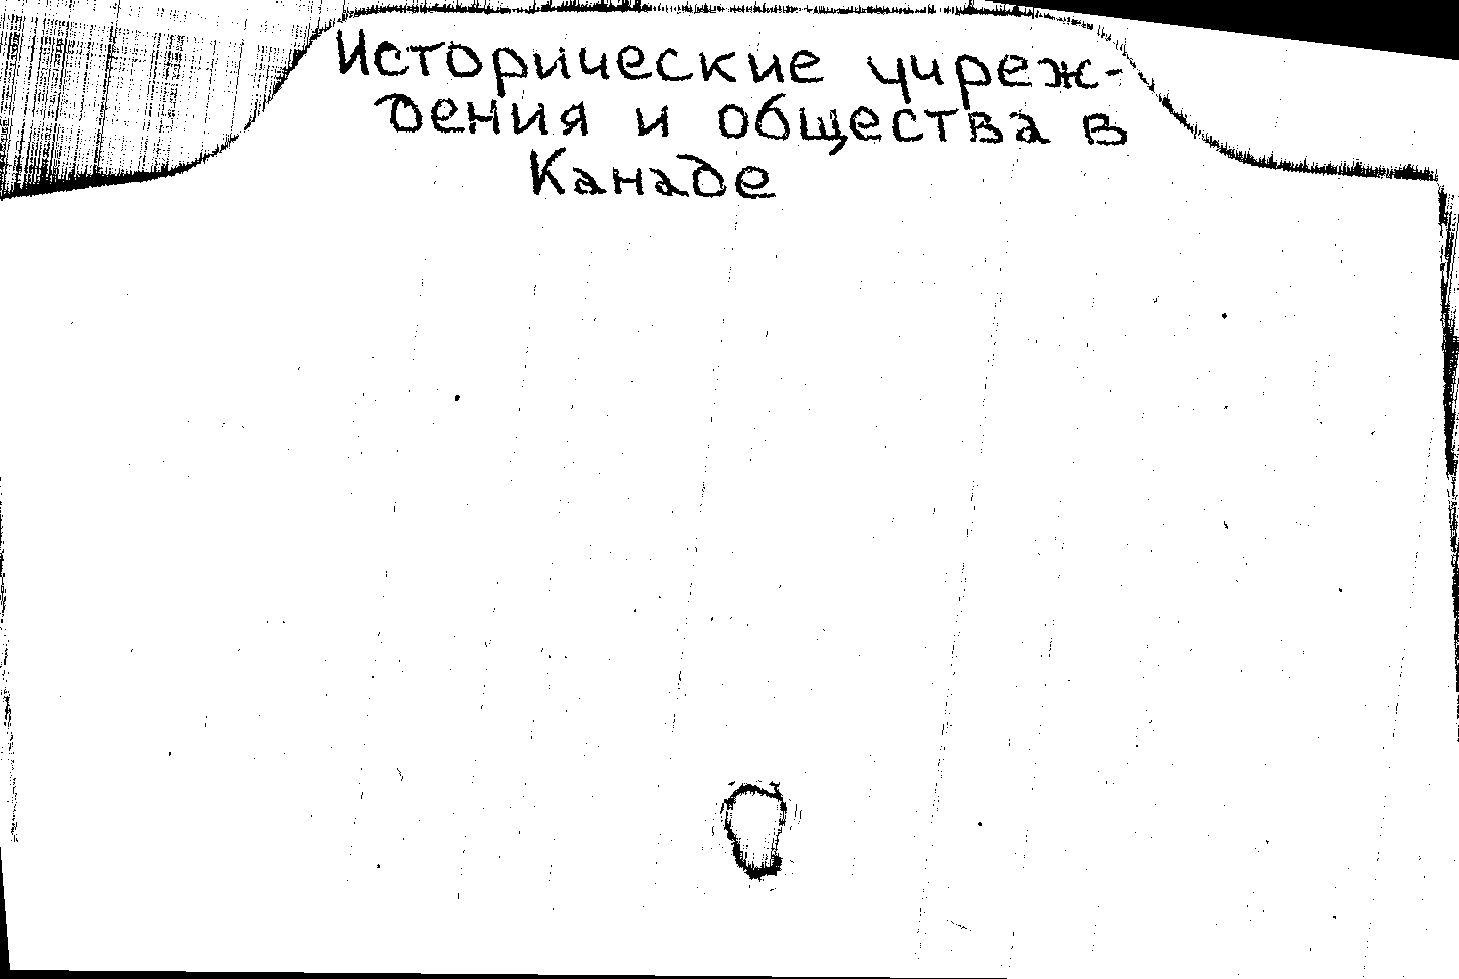 Исторические учреж-
дения и общества в
Канаде